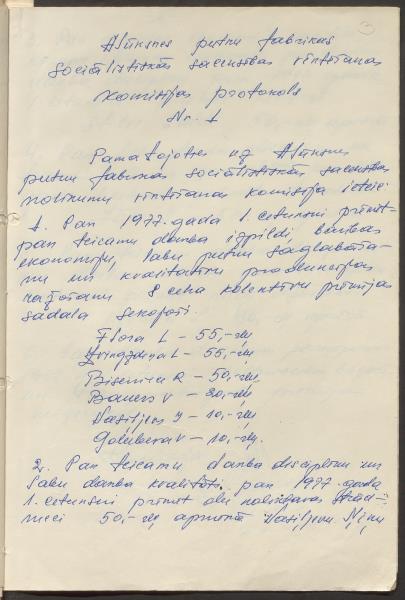 3
Alūksnes putnu fabrikas
sociālistiskās sacensības vērtēšanas
komisijas protokols
Nr. 1
Pamatojoties uz Alūksnes
putnu fabrikas sociālistiskās sacensības
nolikumu vērtēšanas komisija
1. Par 1977. gada 1. ceturksni
par teicamu darba izpildi, barības
ekonomiju, labu putnu saglabāša-
nu un kvalitatīvu produkcijas
ražošanu 8 ceha kolektīvu prēmijas
sadala sekojoši.
Flora L - 55,-
L - 55,-
R - 50,-
Bauers V - 20,-
Vasiļjevs J - 10,-
Golubeva V - 10,-
2. Par teicamu darba disciplīnu un
labu darba kvalitāti par 1977. gada
1. ceturksni
50,- apmērā Vasiļjevu Ņinu